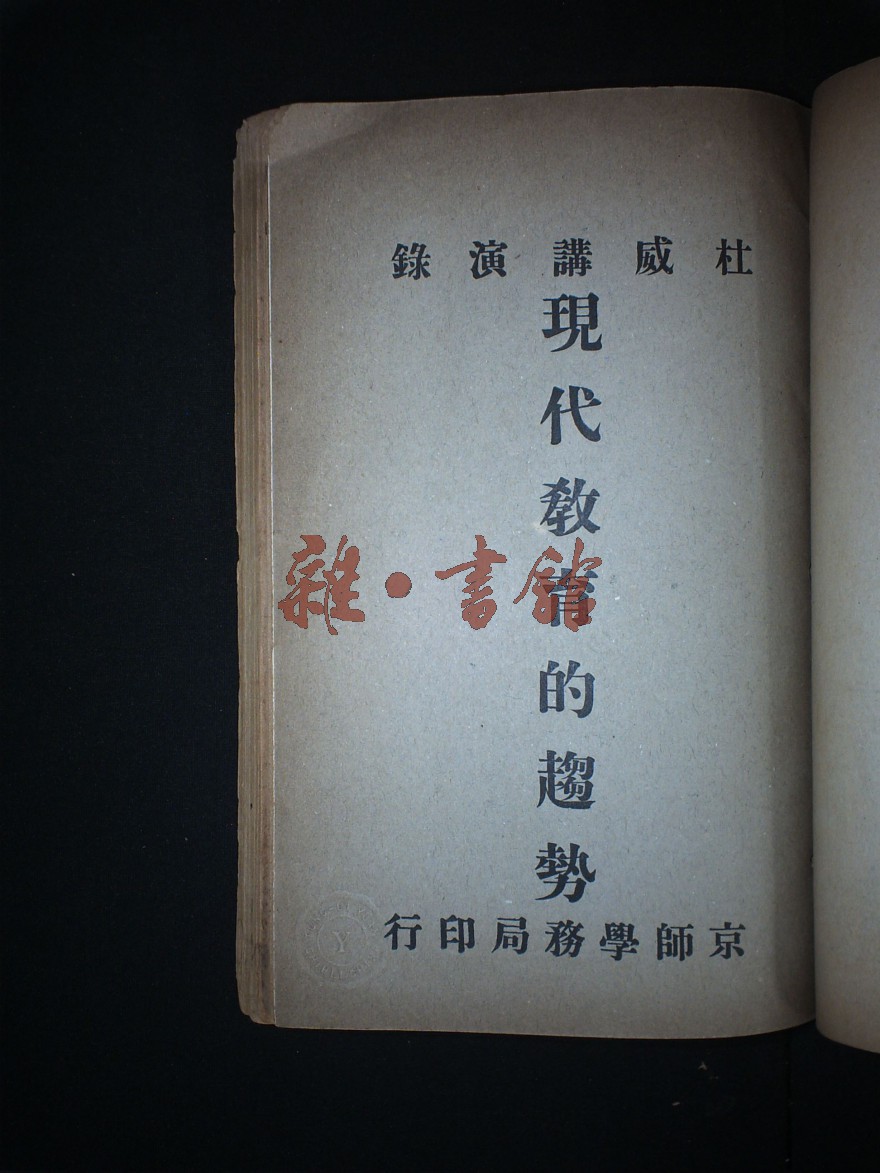 杜威講演錄
現代敎育的趨勢
京師學務局印行
雜·書館